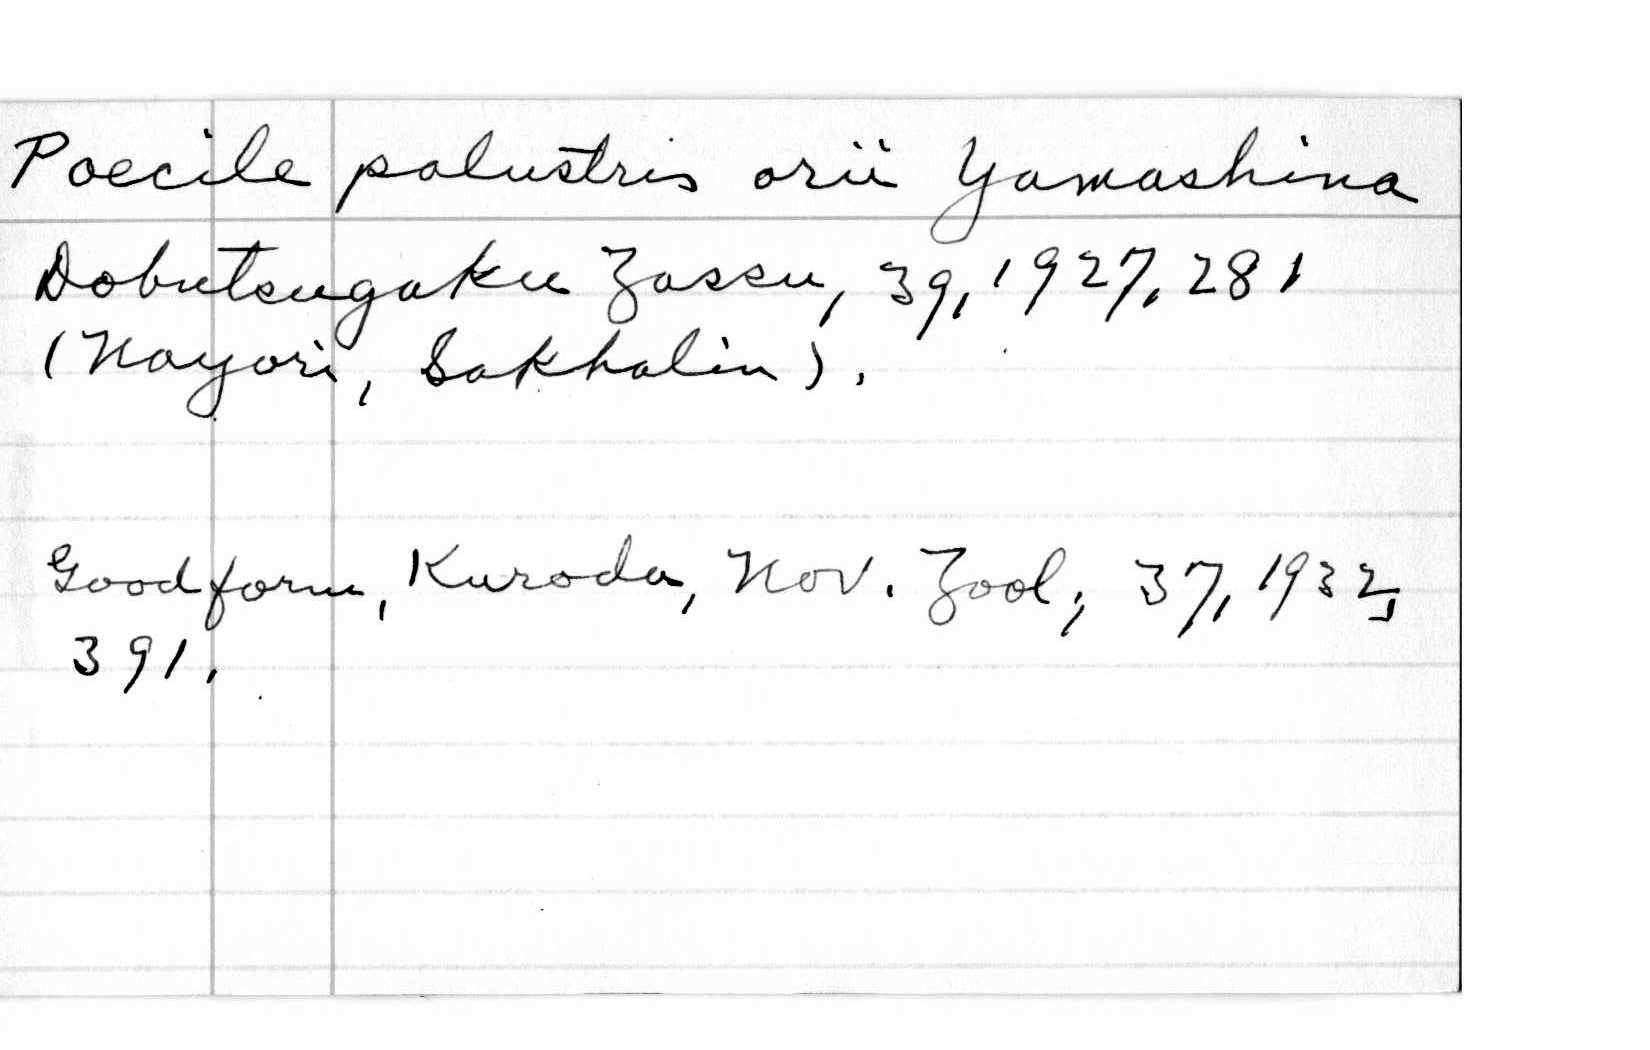 Poecile palustris orii Yamashina
Dobutsugaku Zassu, 39, 1927, 281
(Nayori, Sakhalin).
Good form, Kuroda, Nov. Zool., 37, 1932,
391.